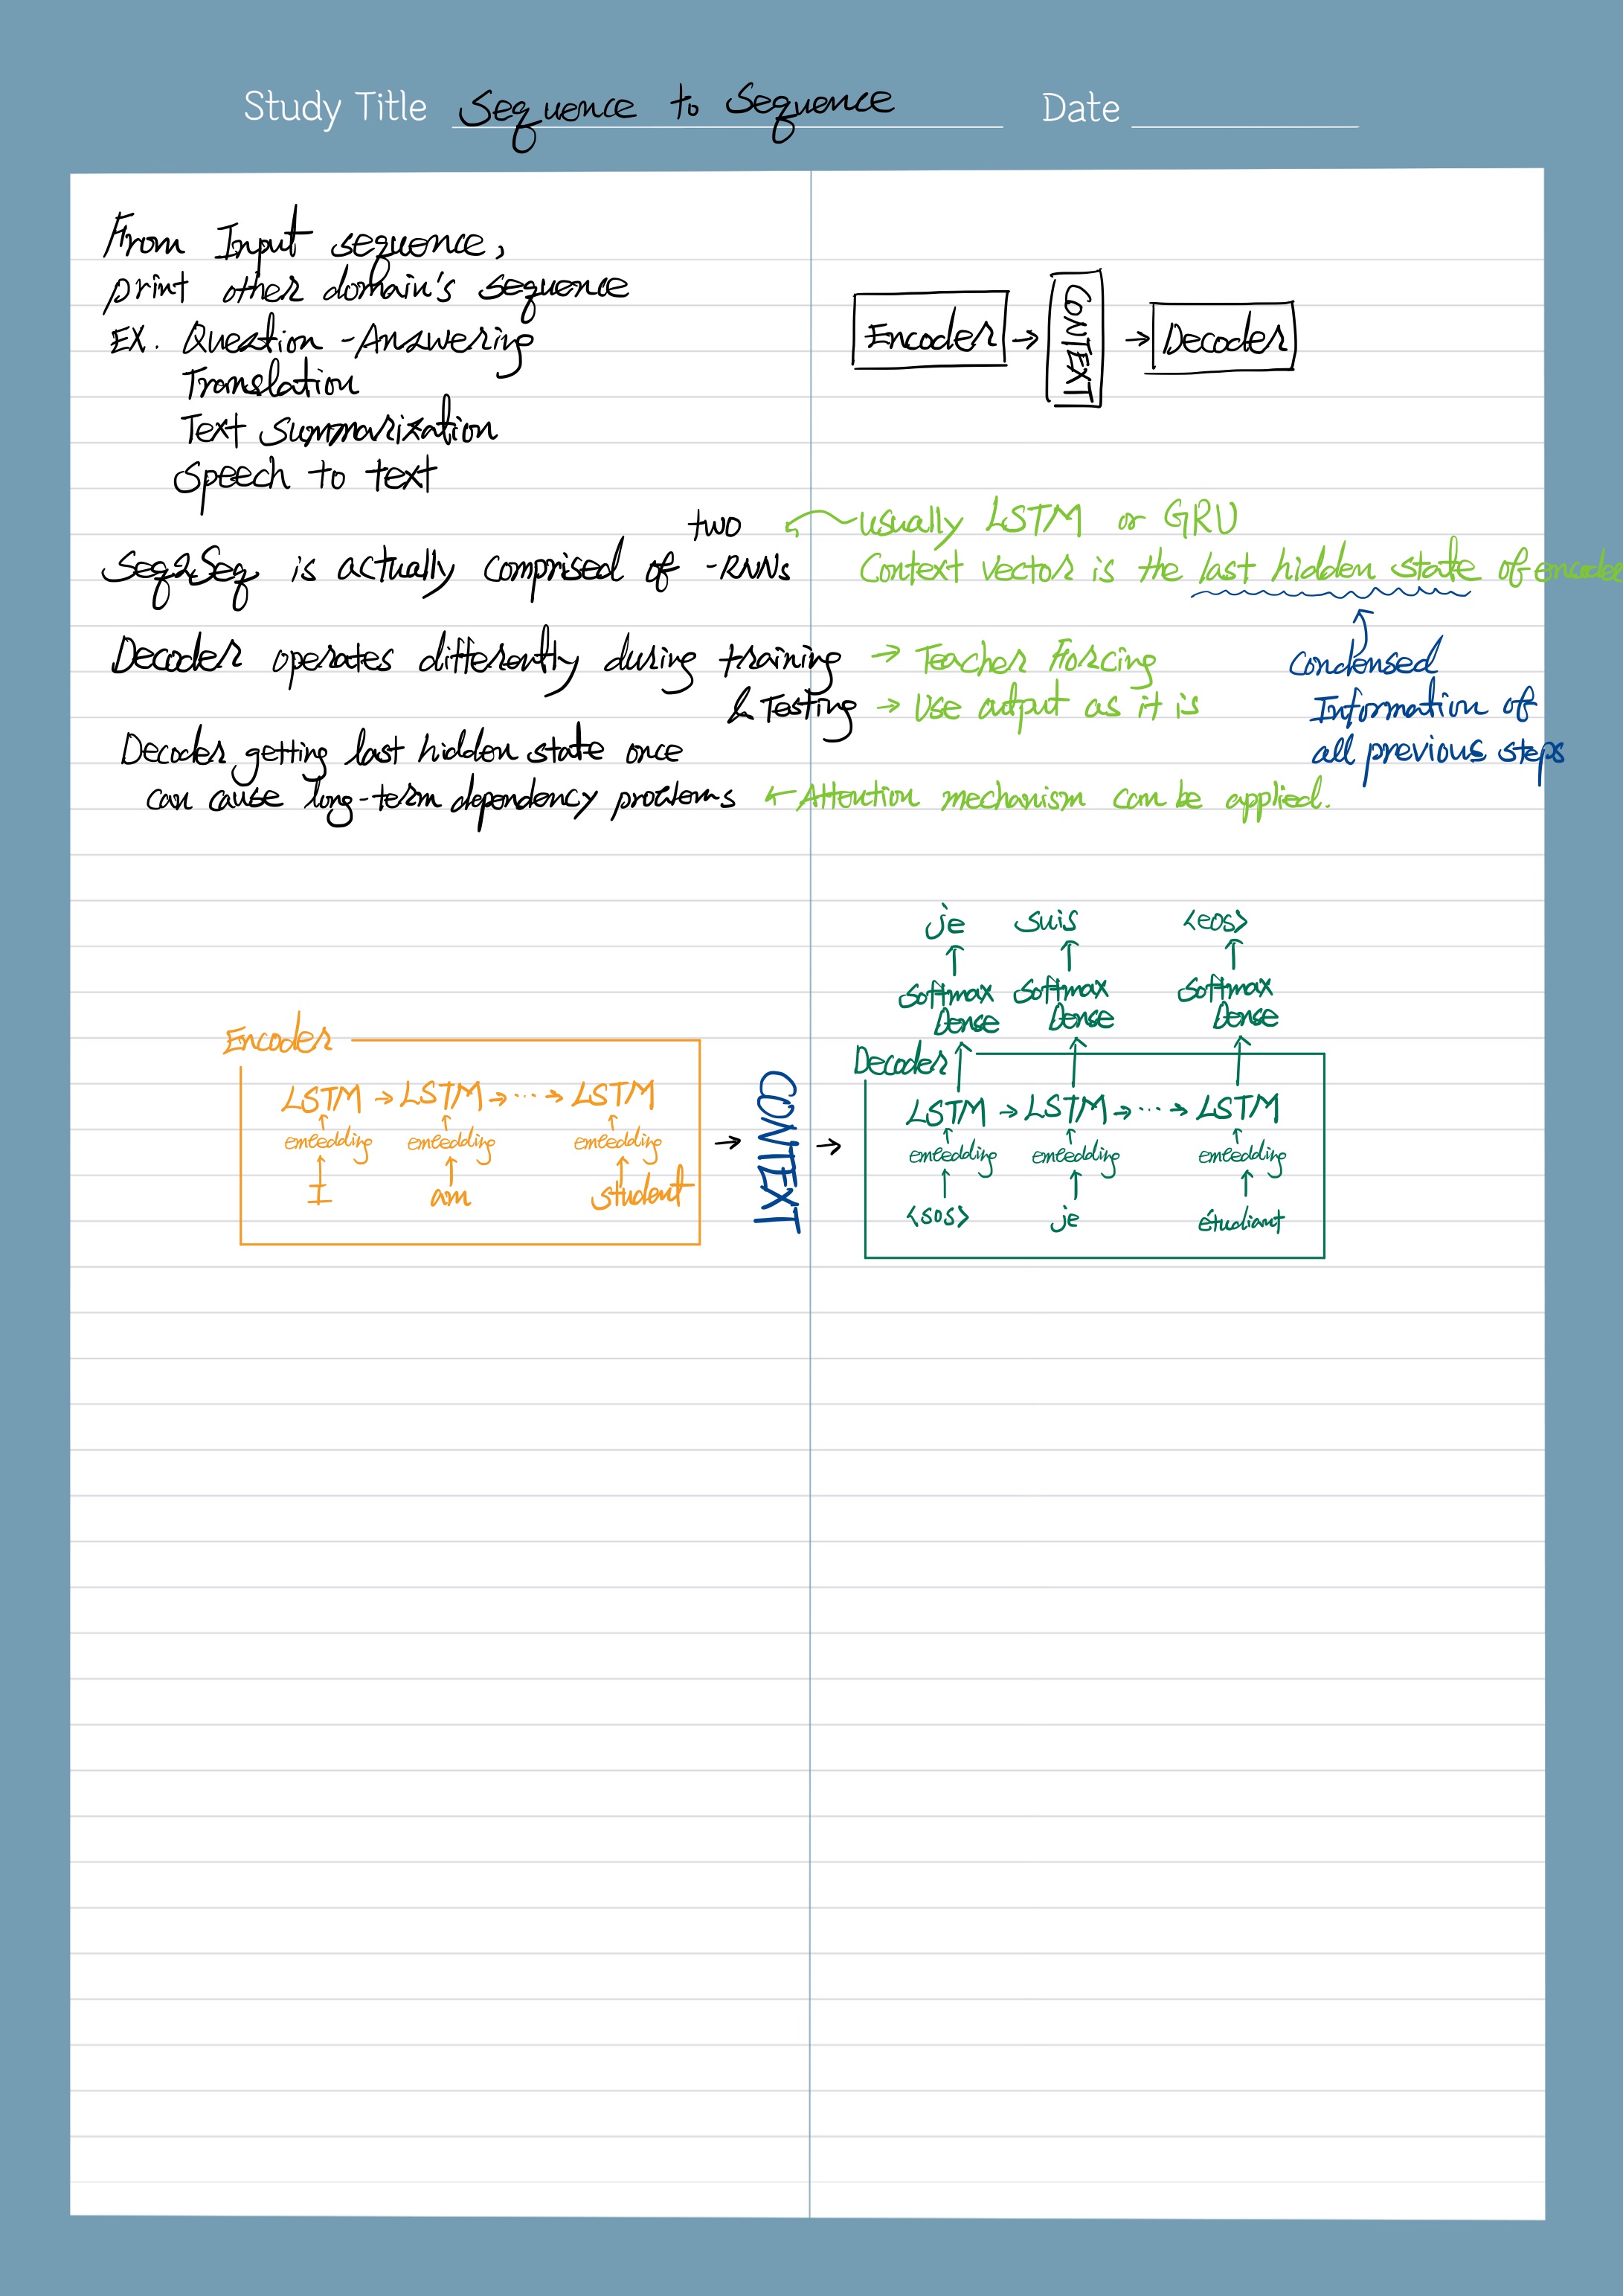 Study Title Sequence to Sequence Date
From Input sequence,
print other domain's sequence
EX. Question-Answering
Translation
Text Summarization
Speech to text
Encoder → CONTEXT → Decoder
two ← usually LSTM or GRU
Seq2Seq is actually comprised of -RNNs
Context vector is the last hidden state of encoder
Condensed
Information of
all previous steps
Decoder operates differently during training → Teacher Forcing
& Testing → Use output as it is
Decoder getting last hidden state once
can cause long-term dependency problems ← Attention mechanism can be applied.
Encoder
LSTM → LSTM → ... → LSTM
embedding embedding embedding
I am student
→ CONTEXT →
je suis <eos>
Softmax Softmax Softmax
Dense Dense Dense
Decoder
LSTM → LSTM → ... → LSTM
embedding embedding embedding
<sos> je étudiant